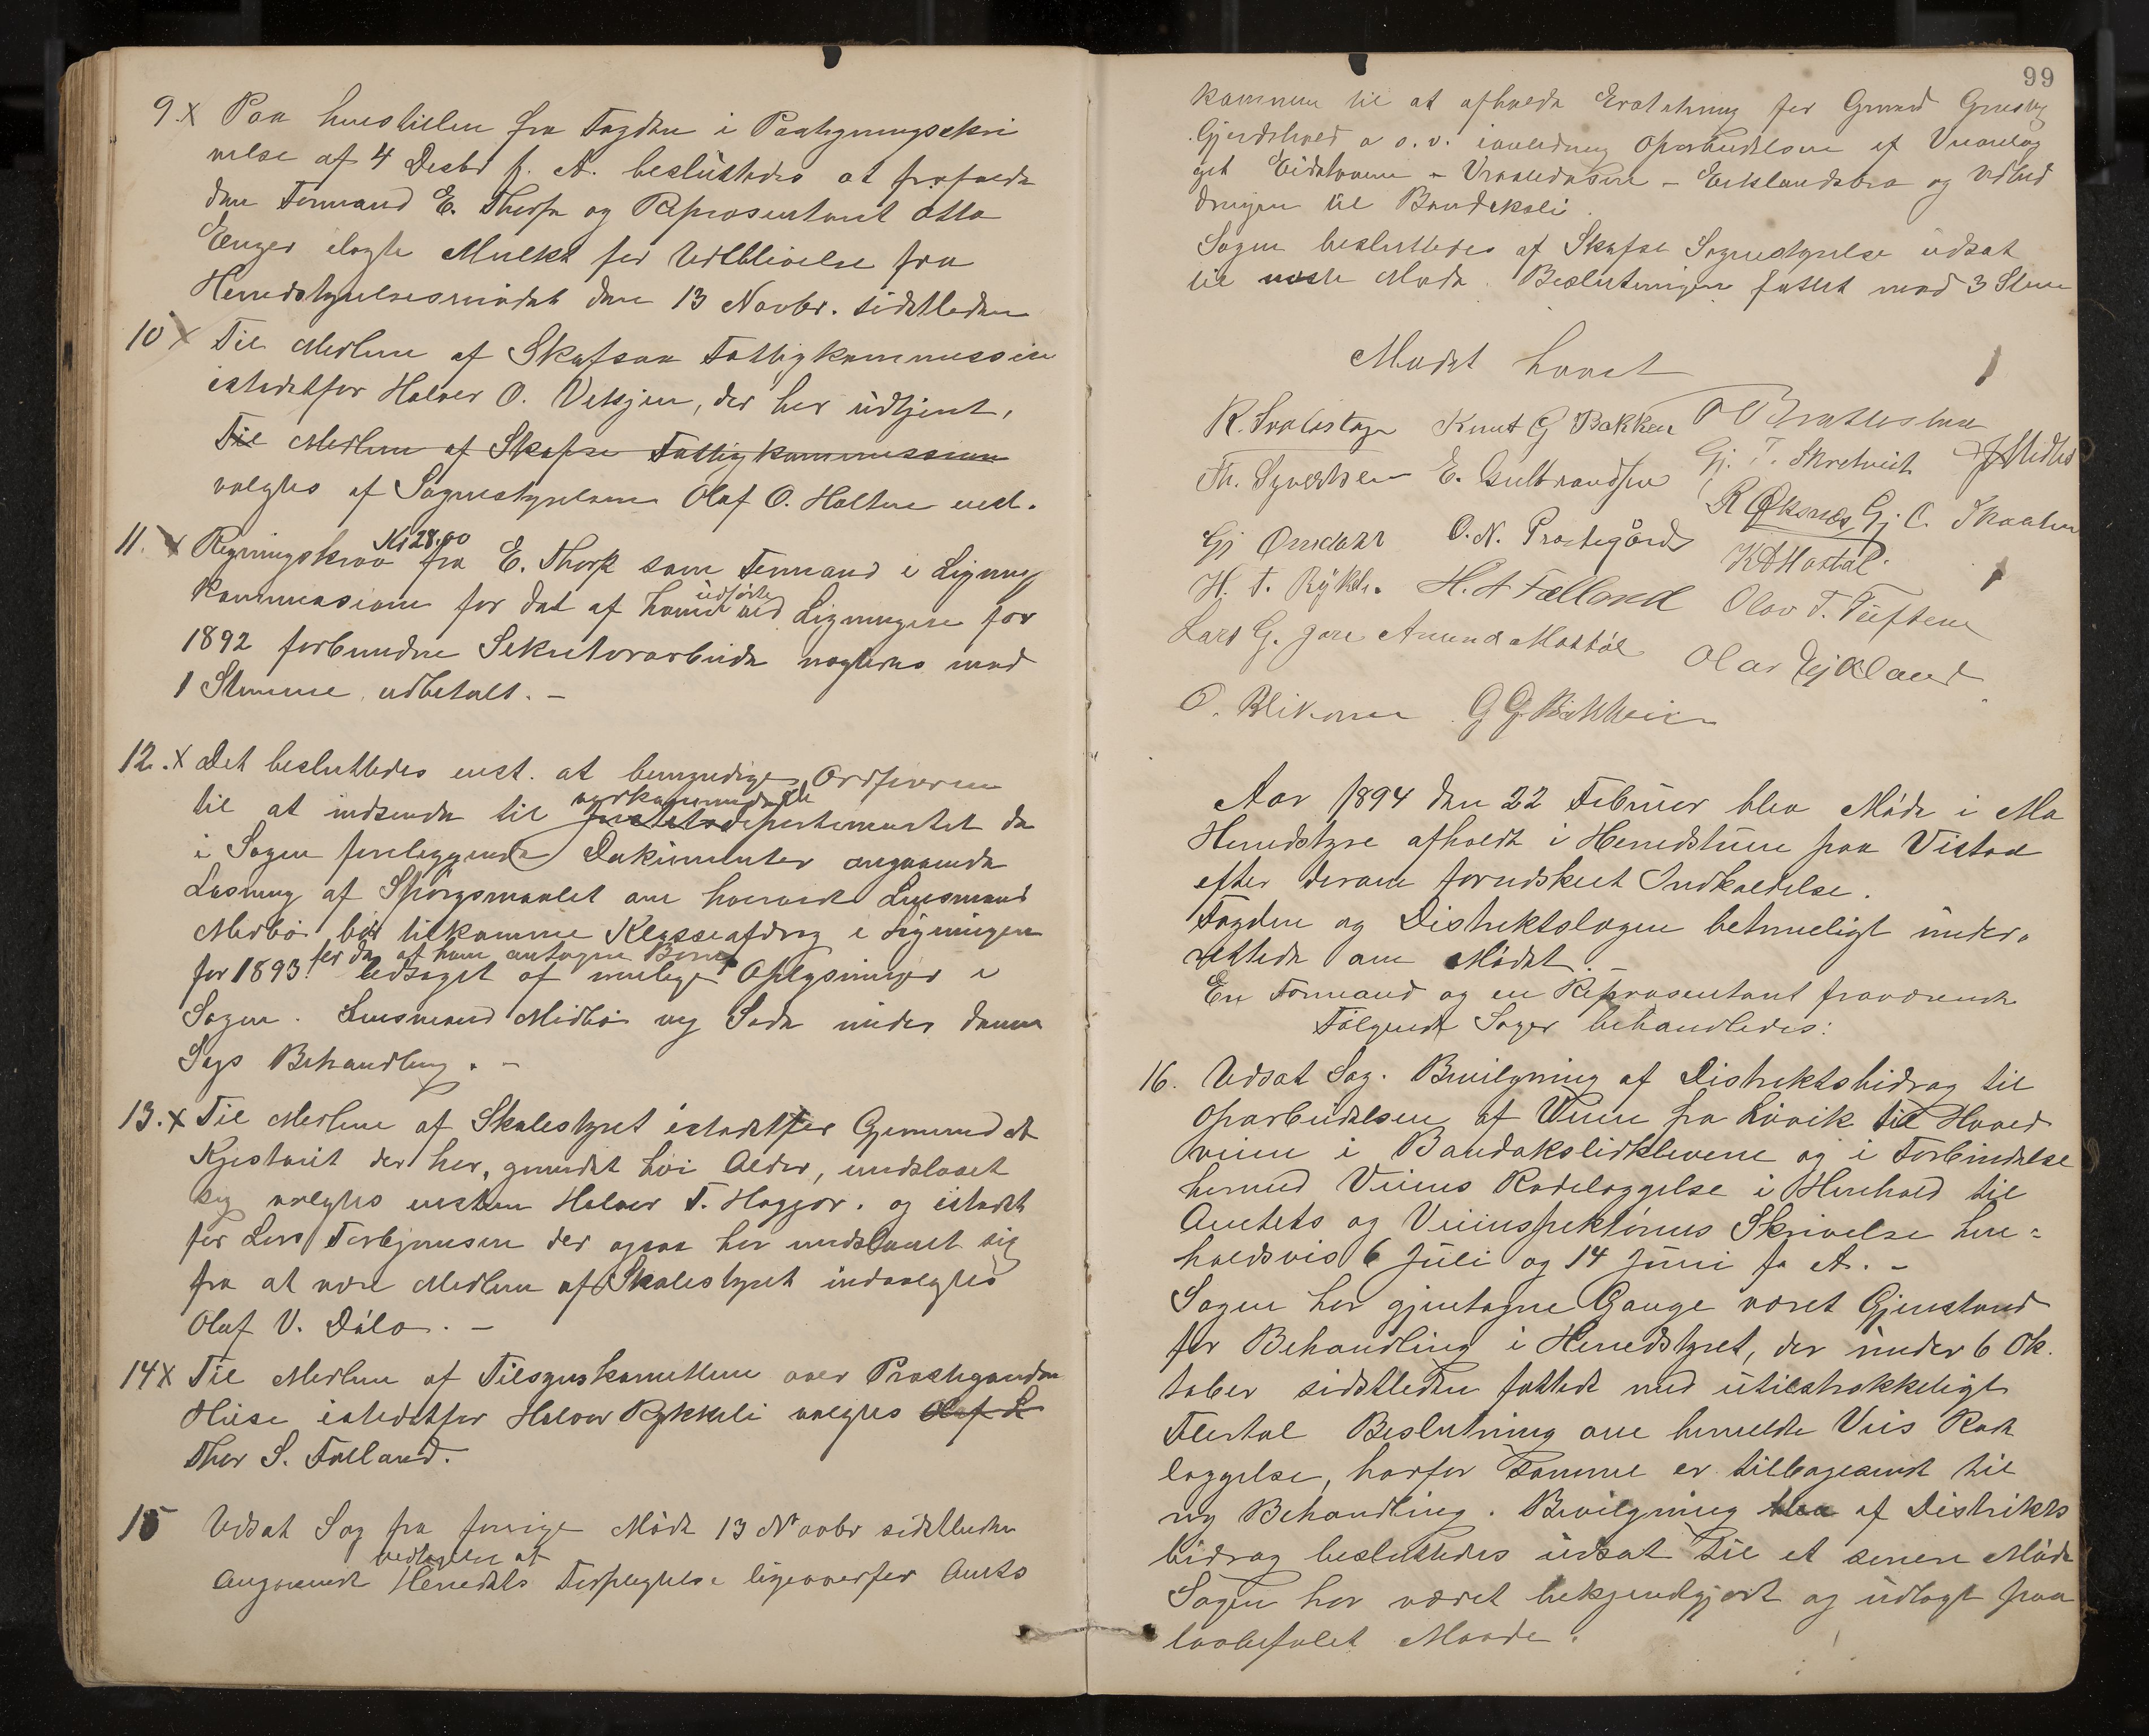 9. x Paa henstillen fra Fogden i Paategningsskri
velse af 4 Decbr f. A. besluttedes at frafalde
den Formand E. Thorp og Repræsentant Otto
Enger ilagte Mulkt for Udeblivelse fra
Herredstyrelsesmødet den 13 Novbr. sidstleden
10 x Til Medlem af Skafsaa Fattigkommission
istedetfor Halvor O. Vetsjen, der har udtjent,
Til Medlem af Skafsaa Fattigkommission
valgtes af Sognestyrelsen Olaf O. Holten enst.
11. x Regningskrav Kr 28.00 fra E. Thorp som Formand i Lignings
kommissionen for det af ham udførte ved Ligningen for
1892 forbundne Sekretærarbeide nægtedes mod
1 Stemme udbetalt. -
12. x Det besluttedes enst. at bemyndige Ordføreren
til at indsende til vedkommende departementet de
i Sagen foreliggende Dokumenter angaaende
Løsning af Spørgsmaalet om hvorvidt Lensmand
Midbø bør tilkomme Klasseafdrag i Ligningen
for 1893 for de af ham antagne Børn ledsaget af mulige Oplysninger i
Sagen. Lensmand Midbø veg Sæde under denne
Sags Behandling. -
13. x Til Medlem af Skolestyret istedetfor Gjermund
der har, grundet høi Alder, undslaaet
sig valgtes Halvor T. Haggor. og istedet
for Lars Torbjørnsen der ogsaa har undslaaet sig
fra at være Medlem af Skolestyret indvalgtes
Olaf V. Dålo. -
14 x Til Medlem af Tilsynskomitteen over Præstegaardens
Huse istedetfor Halvor Rykkeli valgtes Olaf L
Thor S. Folland.
15 Udsat Sag fra forrige Møde 13 Novbr sidstleden
angaaende vedtagelse af Herredets Forpligtelse ligeoverfor Amts
99
kommunen til at afholde Erstatning for Grund Grustag
Gjerdehold o. s. v. i anledning Oparbeidelsen af Veianlæg
get Eidstoveien - Vraaledosen - og Udbed
dringen til Bandaksli.
Sagen besluttedes af Skafsaa Sognestyrelse udsat
til næste Møde. Beslutningen fattet mod 3 Stem
Mødet hævet
R. Svalastoga Knut G Bakken O Brattestaa
Th. Syvertsen E. Gulbrandsen Gj. T. Skretveit J Midbø
Gj Omdahl O. N. Prestegård R Øksnes Gj O. Skaalen
H. T. Rykli. H. A Fælland K A Hostal.
Lars G. Jore Amund Mostøl Olav T. Tuften
Olav Eikland
O. Blikom G G Bakheim
Aar 1894 den 22 Februar blev Møde i Mo
Herredstyre afholdt i Herredstuen paa Vistad
efter derom forudskeet Indkaldelse.
Fogden og Distriktslægen betimeligt under-
rettede om Mødet. -
En Formand og en Repræsentant fraværende
Følgende Sager behandledes:
16. Udsat Sag. Bevilgning af Distriktsbidrag til
Oparbeidelsen af Veien fra Lårvik til Hoved
veien i Bandakslidklevene og i Forbindelse
hermed Veiens Rodelæggelse i Henhold til
Amtets og Veiinspektørens Skrivelse hen=
holdsvis 6 Juli og 14 Juni f. A. -
Sagen har gjentagne Gange været Gjenstand
for Behandling i Herredstyret, der under 6 Ok.
tober sidstleden fattede med utilstrækkeligt
Flertal Beslutning om bemeldte Veis Rode
læggelse, hvorfor Samme er tilbagesendt til
ny Behandling. Bevilgning af Distrikts
bidrag besluttedes udsat til et senere Møde
Sagen har været bekjendtgjort og udlagt paa
lovbefalet Maade.